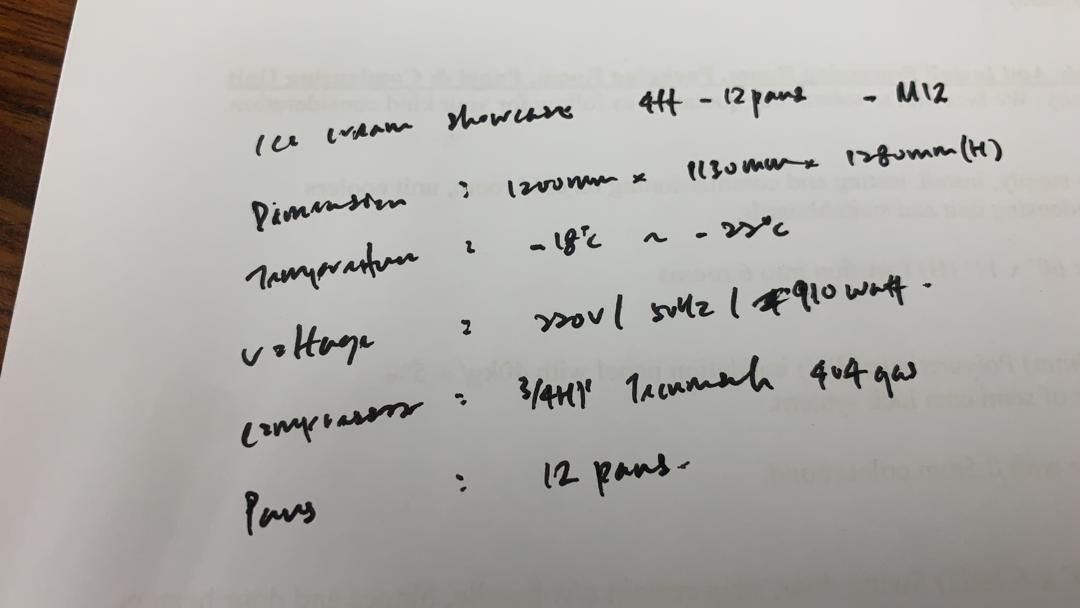 Ice cream showcase 4ft - 12 pans - M12
Dimension : 1200mm x 1130mm x 1280mm (H)
Temperature : -18°c ~ -22°c
Voltage : 220V / 50Hz / 910 watt.
Compressor : 3/4HP Tecumseh 404 gas
Pans : 12 pans.